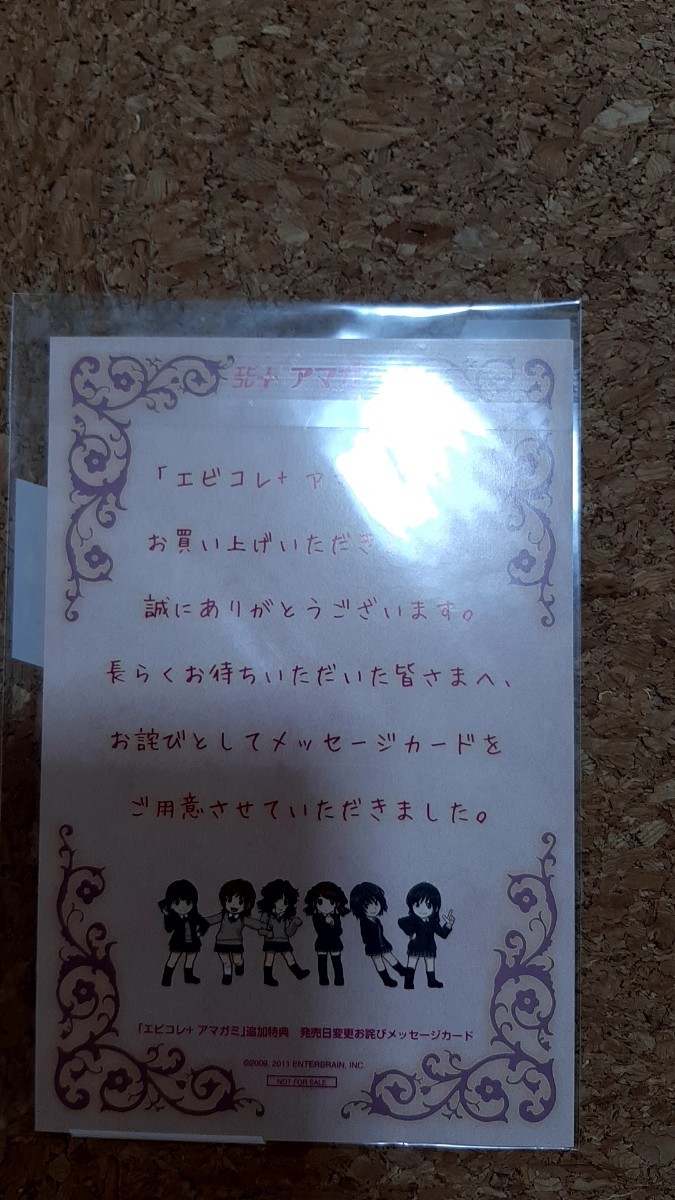 エビコレ+ アマガ
「エビコレ+ アマ
お買い上げいただき
誠にありがとうございます。
長らくお待ちいただいた皆さまへ、
お詫びとしてメッセージカードを
ご用意させていただきました。
「エビコレ+ アマガミ」追加特典 発売日変更お詫びメッセージカード
©2009, 2011 ENTERBRAIN, INC.
NOT FOR SALE